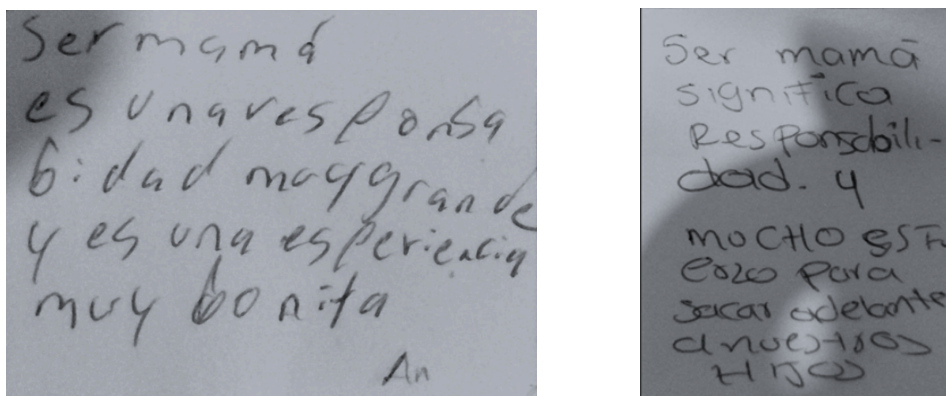 Ser mamá
es una responsa
bidad muy grande
y es una esperiencia
muy bonita
An
Ser mamá
significa
Responsabili-
dad. y
MUCHO ESF
erzo para
sacar adelante
a nuestros
HIJOS